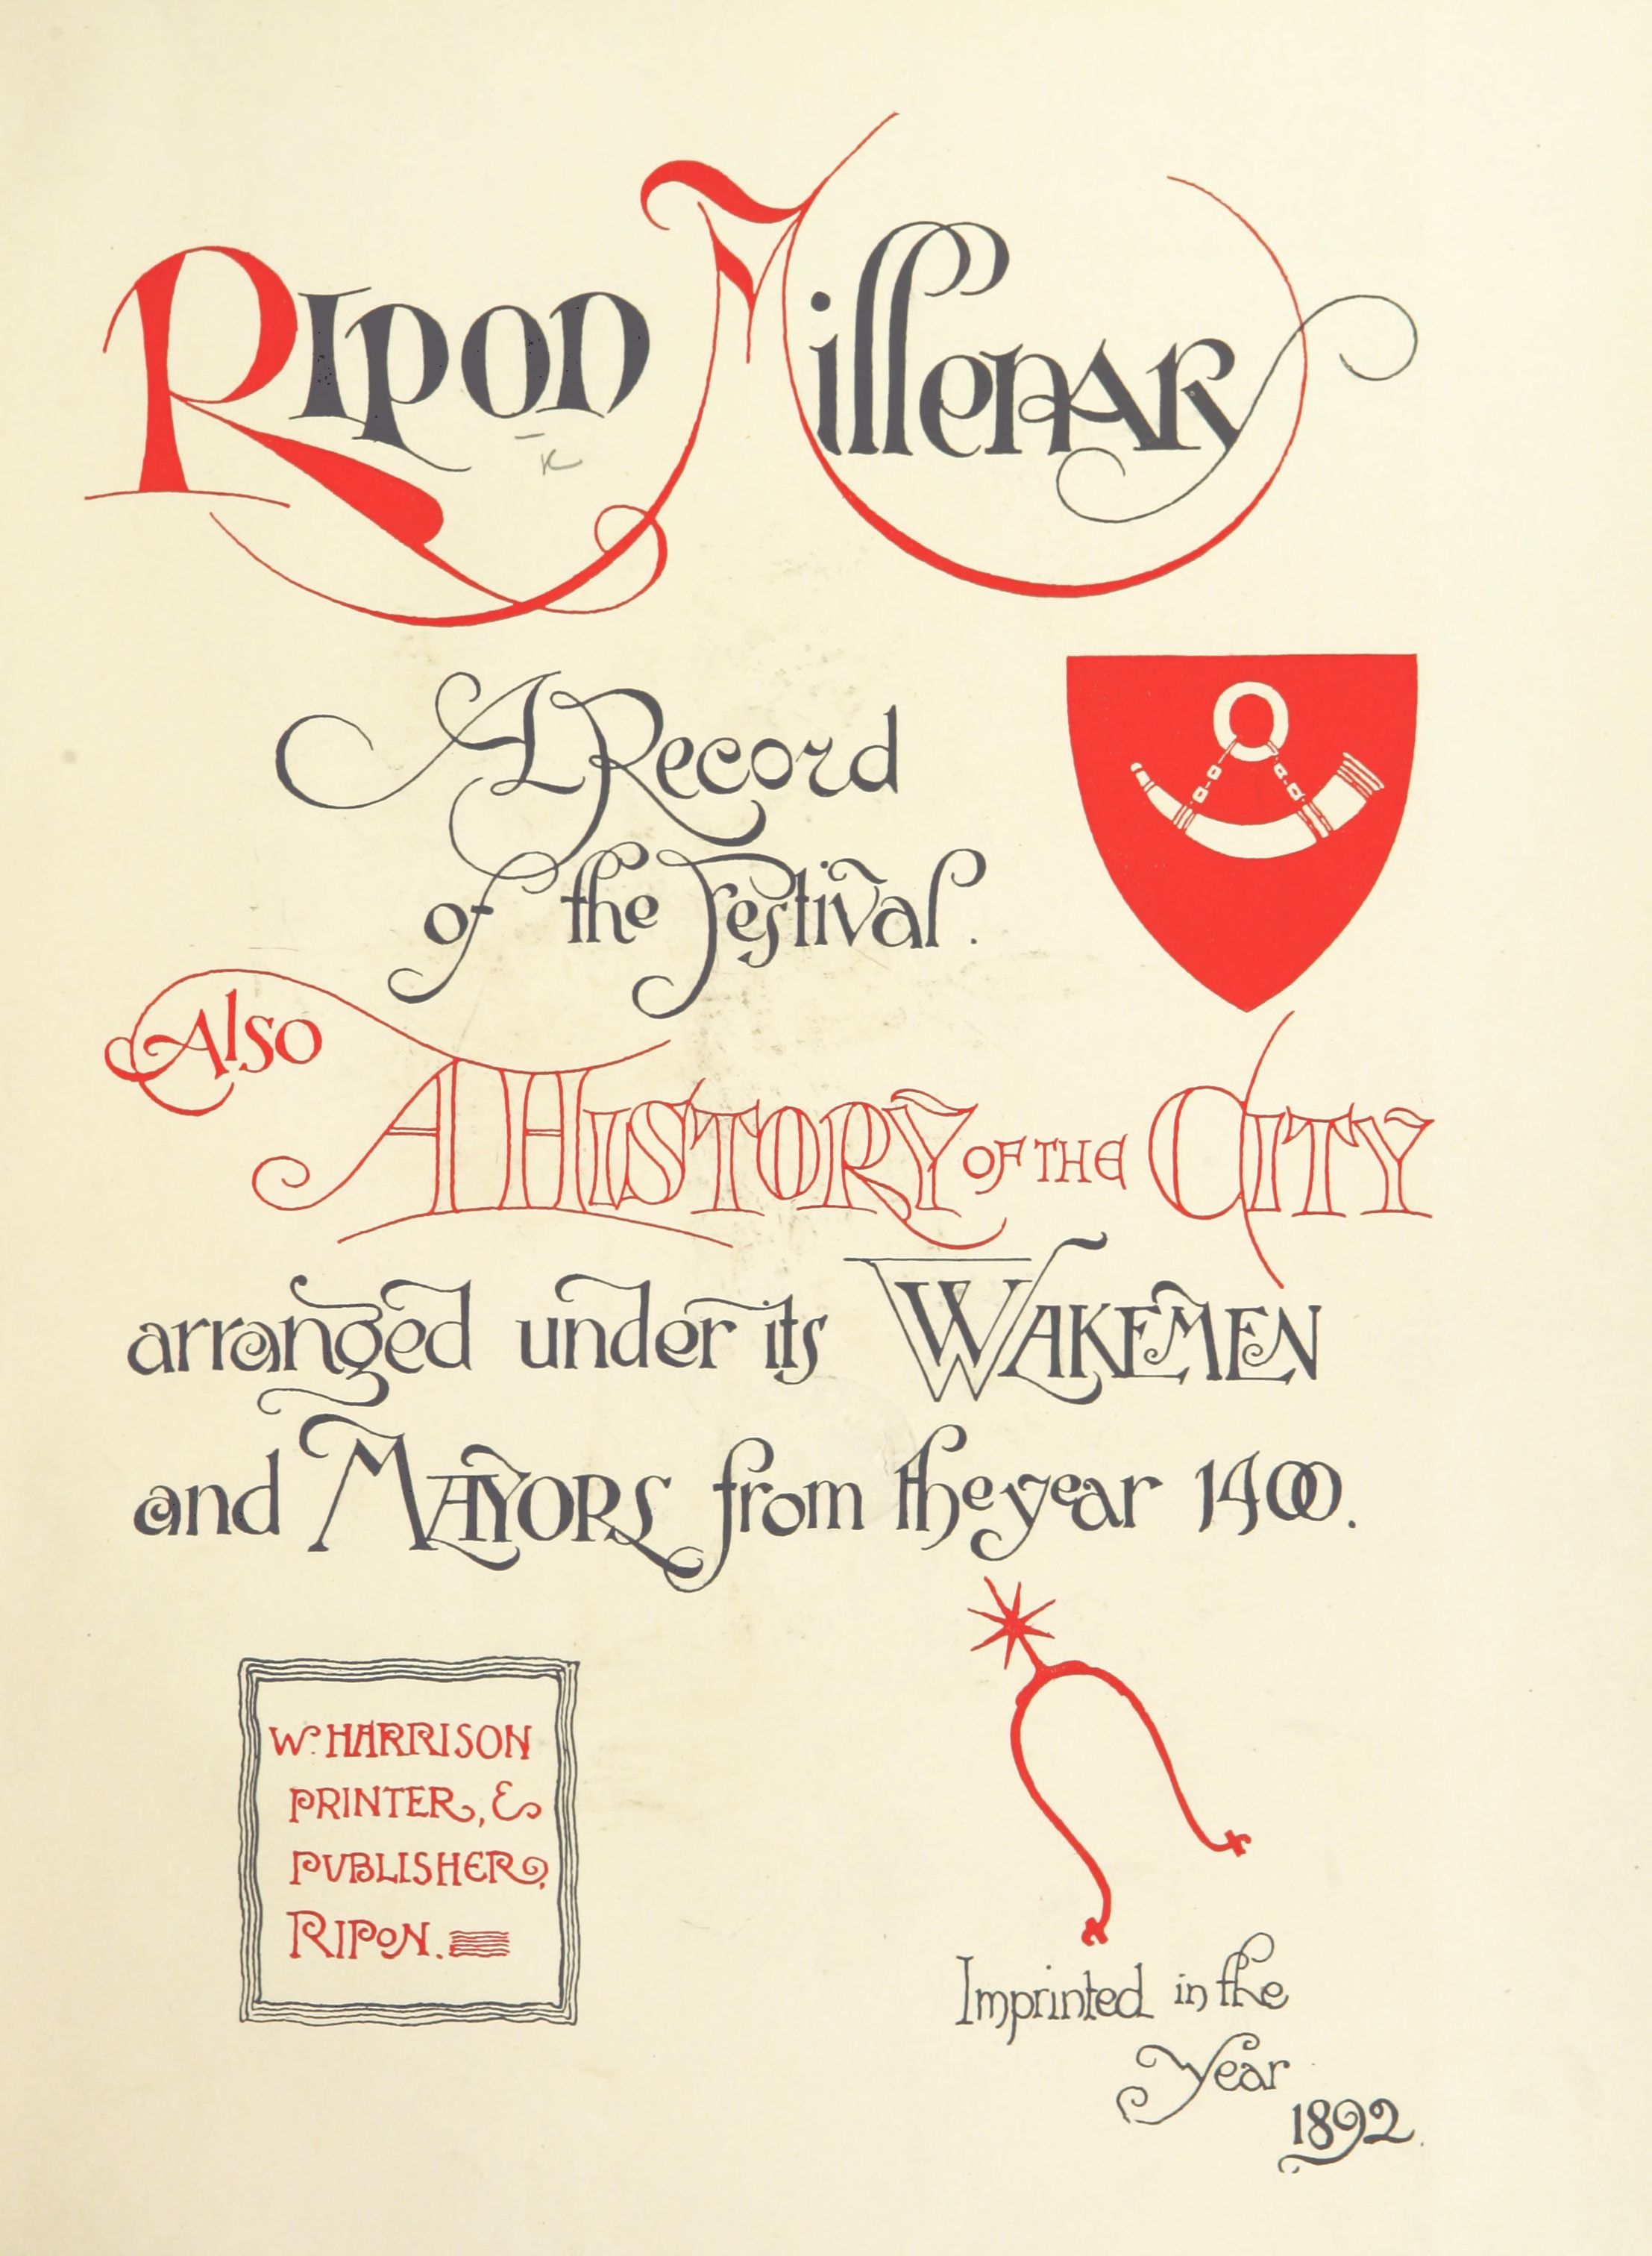 Ripon Millenary
A Record
of the Festival.
Also
A HISTORY OF THE CITY
arranged under its WAKEMEN
and MAYORS from the year 1400.
W. HARRISON
PRINTER, &
PVBLISHER,
RIPON.
Imprinted in the
Year
1892.